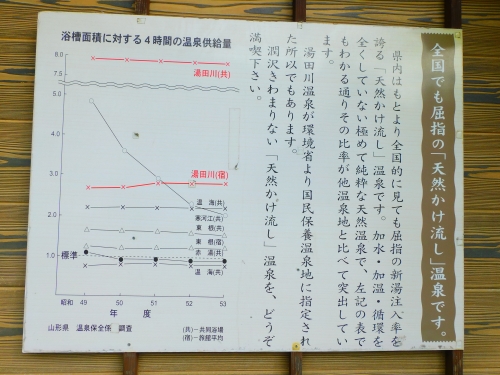 全国でも屈指の「天然かけ流し」温泉です。
県内はもとより全国的に見ても屈指の新湯注入率を
誇る「天然かけ流し」温泉です。加水・加温・循環を
全くしていない極めて純粋な天然温泉で、左記の表で
もわかる通りその比率が他温泉地と比べて突出してい
ます。
湯田川温泉が環境省より国民保養温泉地に指定され
た所以でもあります。
潤沢きわまりない「天然かけ流し」温泉を、どうぞ
満喫下さい。
浴槽面積に対する4時間の温泉供給量
8.0
7.5
湯田川(共)
5.0
4.0
3.0
湯田川(宿)
2.0
温海(共)
寒河江(共)
東根(共)
東根(宿)
標準
1.0
赤湯(共)
温海(共)
昭和 49 50 51 52 53
年度
山形県 温泉保全係 調査
(共)―共同浴場
(宿)―旅館平均